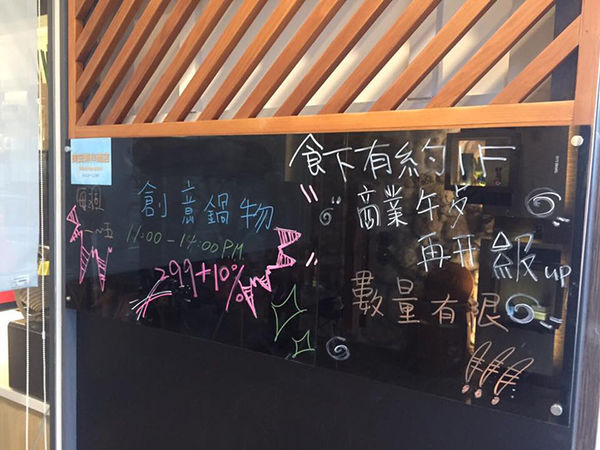 每週
一~五
創意鍋物
11:00-14:00 P.M.
299+10%
食下有約1F
商業午歺
再升級 up
數量有限
!!!